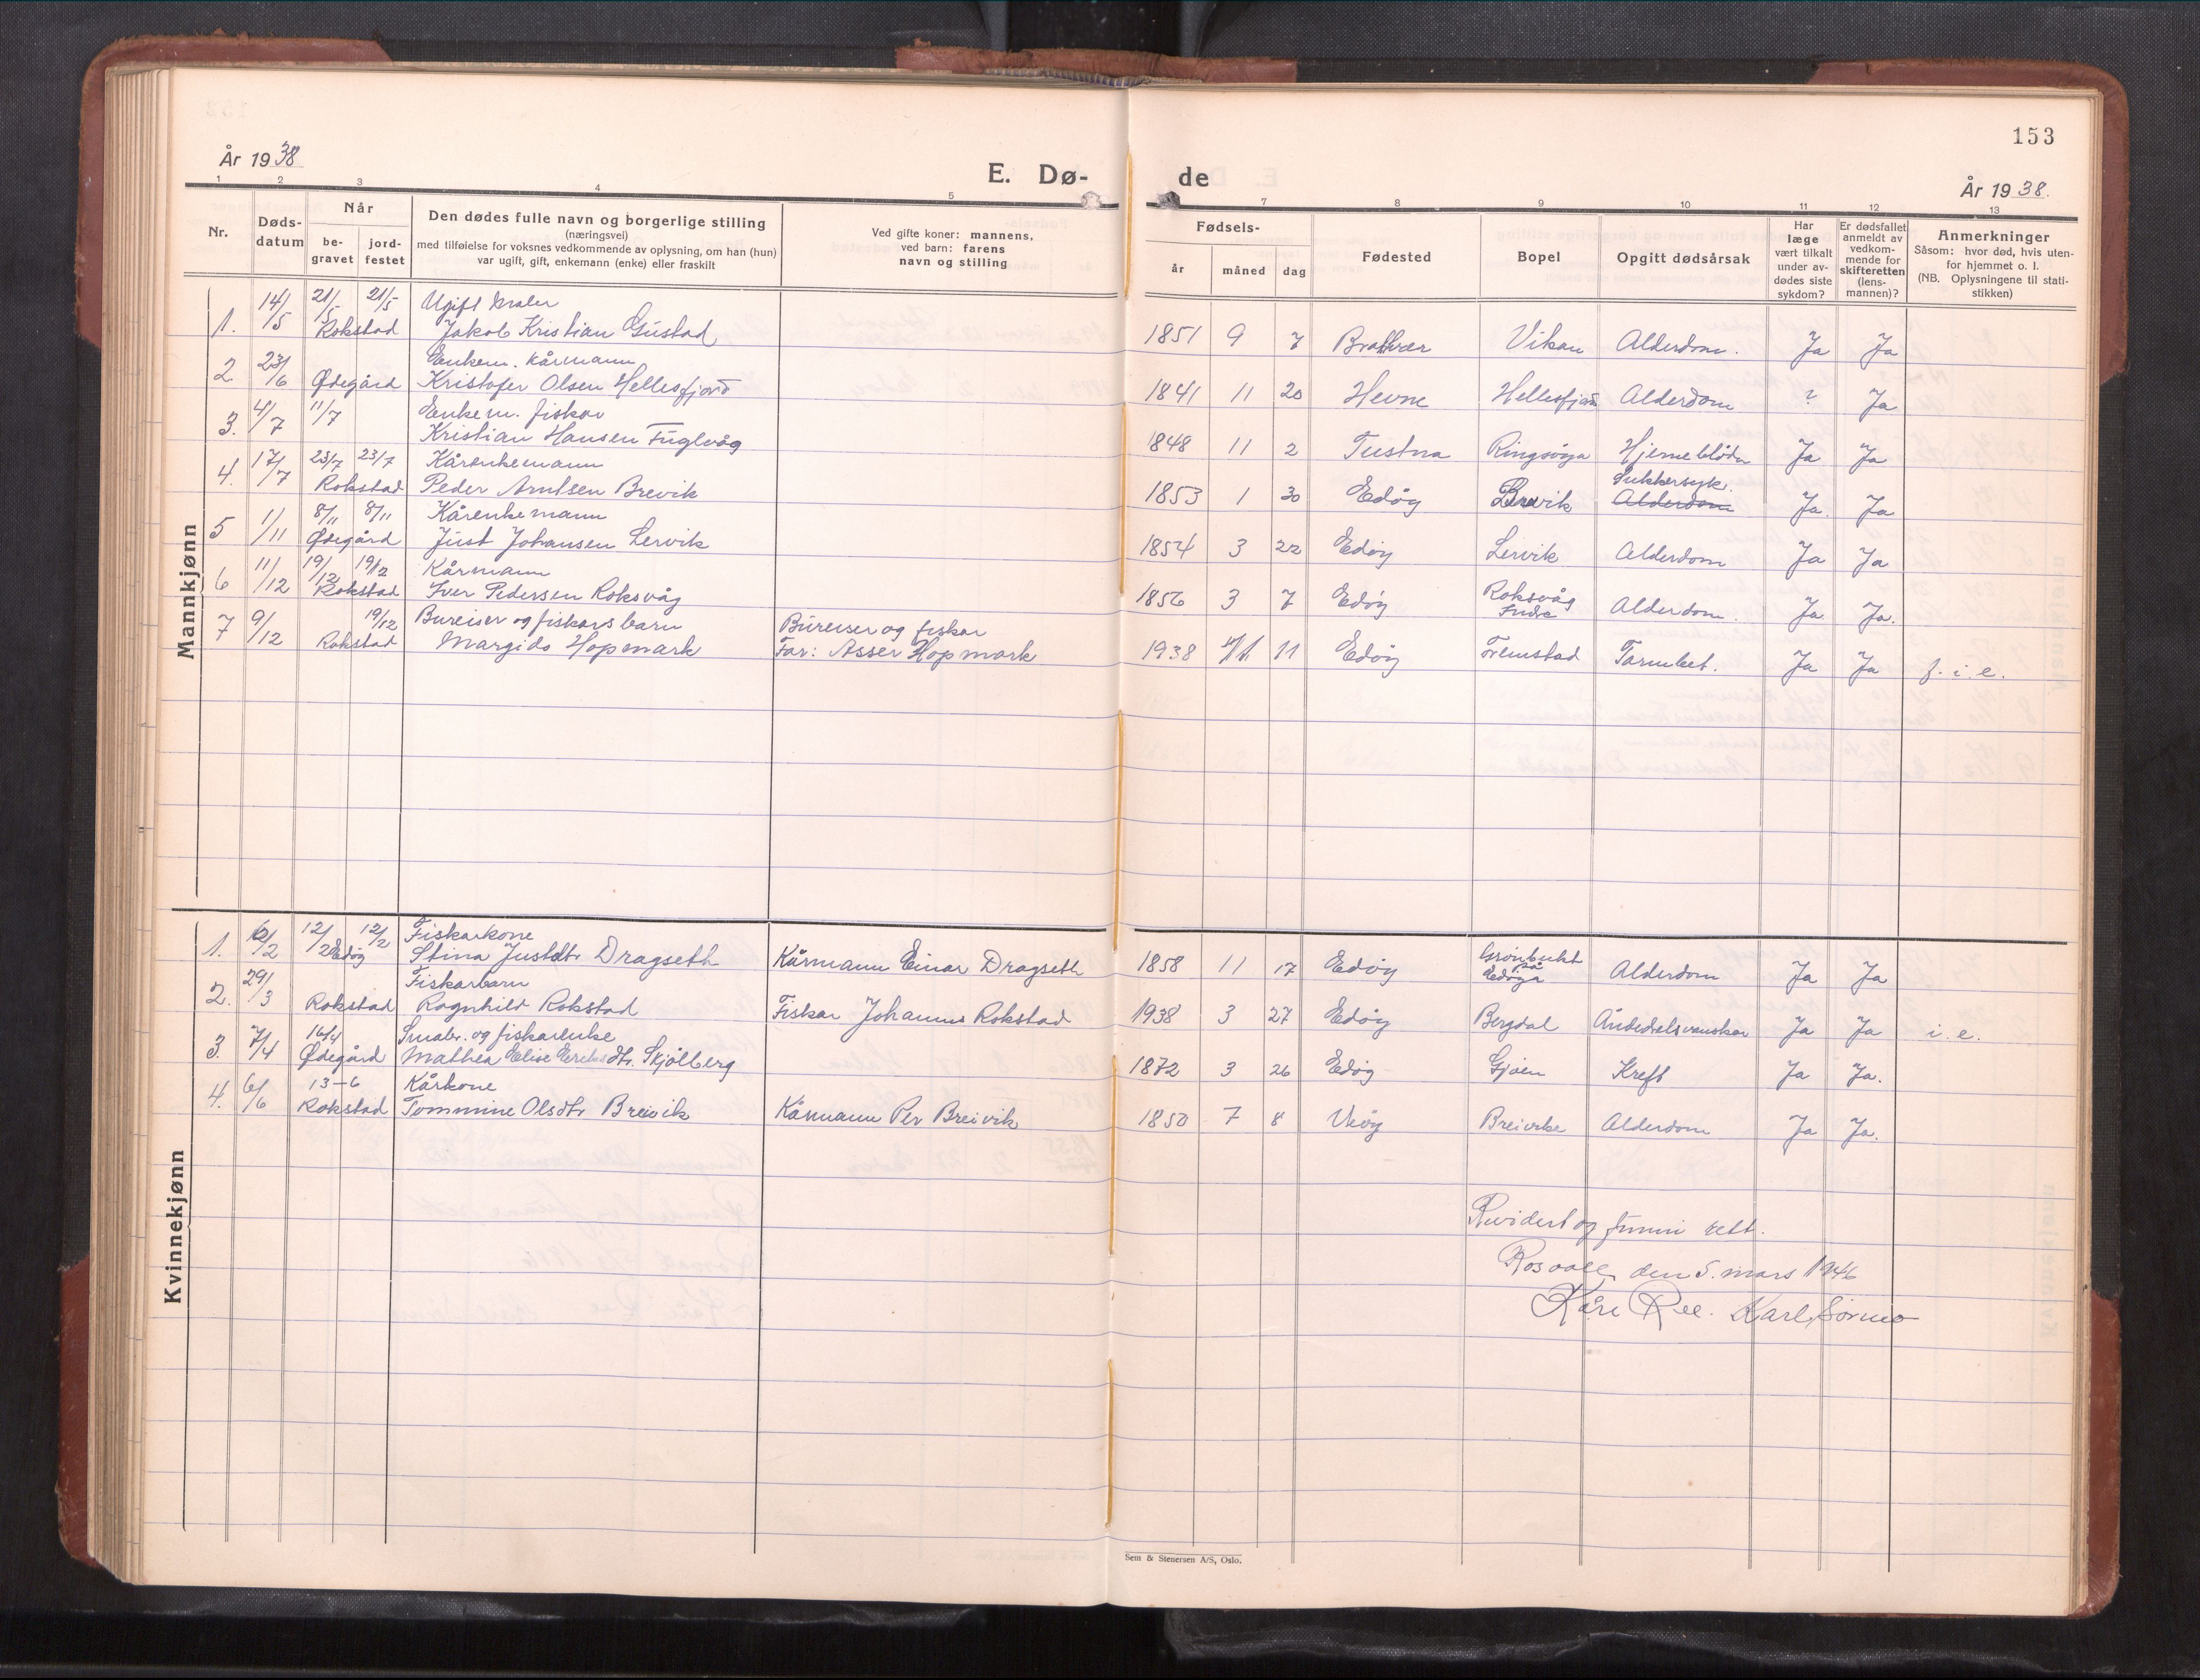 153
År 1938
E. Dø-de
År 1938.
1 2 3 4 5 7 8 9 10 11 12 13
Nr.
Døds-
datum
Når
be-
gravet
jord-
festet
Den dødes fulle navn og borgerlige stilling
(næringsvei)
med tilføielse for voksnes vedkommende av oplysning, om han (hun)
var ugift, gift, enkemann (enke) eller fraskilt
Ved gifte koner: mannens,
ved barn: farens
navn og stilling
Fødsels-
år
måned
dag
Fødested
Bopel
Opgitt dødsårsak
Har
læge
vært tilkalt
under av-
dødes siste
sykdom?
Er dødsfallet
anmeldt av
vedkom-
mende for
skifteretten
(lens-
mannen)?
Anmerkninger
Såsom: hvor død, hvis uten-
for hjemmet o. l.
(NB. Oplysningene til stati-
stikken)
Mannkjønn
14/5 21/5 21/5 Ugift maler
1. Rokstad Jakob Kristian Gustad 1851 9 7 Brattvær Vikan Alderdom. Ja Ja
23/6 Enkem. kårmann
2. Ødegård Kristofer Olsen Hellesfjord 1841 11 20 Hevne Hellesfjord Alderdom ? Ja
4/7 11/7 Enkem. fiskar
3. Kristian Hansen Fuglvåg 1848 11 2 Tustna Ringsøya Hjerneblødn Ja Ja
17/7 23/7 23/7 Kårenkemann Sukkersyk.
4. Rokstad Peder Arntsen Brevik 1853 1 30 Edøy Brevik Alderdom Ja. Ja
1/11 8/11 8/11 Kårenkemann
5 Ødegård Just Johansen Lervik 1854 3 22 Edøy Lervik Alderdom Ja Ja
11/12 19/12 19/12 Kårmann
6 Rokstad Iver Pedersen Roksvåg 1856 3 7 Edøy Roksvåg Indre Alderdom. Ja Ja.
9/12 19/12 Bureiser og fiskars barn Bureiser og fiskar
7 Rokstad Margido Hopmark Far: Asser Hopmark 1938 11 Edøy Tømstad Tarmbet. Ja Ja f. i. e.
Kvinnekjønn
6/2 12/2 12/2 Fiskarkone
1. Edøy Stina Justdtr Dragseth Kårmann Einar Dragseth 1858 11 17 Edøy Grønbukt på Edøya Alderdom Ja Ja
29/3 Fiskarbarn
2. Rokstad Ragnhild Rokstad Fiskar Johannes Rokstad 1938 3 27 Edøy Bergdal Åndedretsvanskar Ja Ja i. e.
7/4 16/4 Småbr. og fiskarenke
3. Ødegård Mathea Elise Eriksdtr. Skjølberg 1872 3 26 Edøy Gjøen Kreft Ja Ja.
6/6 13-6 Kårkone
4. Rokstad Tommine Olsdtr Breivik Kårmann Per Breivik 1850 7 8 Veøy Breivika Alderdom Ja Ja.
Revidert og funni rett.
Rosvoll den 5. mars 1946
Kåre Ree. Karl Sørmo
Sem & Stenersen A/S, Oslo.